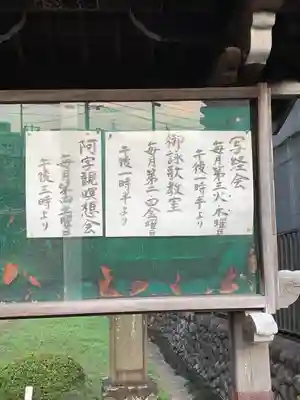 写経会
毎月第三火・水曜日
午後一時半より
御詠歌教室
毎月第二・四金曜日
午後一時半より
阿字観瞑想会
毎月第四土曜日
午後三時より